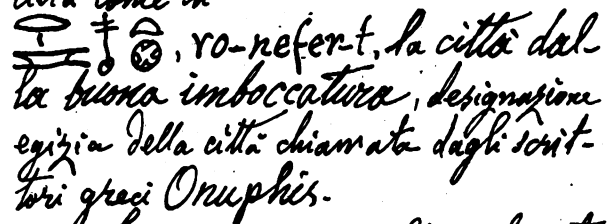 come in
𓂋𓄤𓏏𓊖, ro-nefer-t, la città dal-
la buona imboccatura, designazione
egizia della città chiamata dagli scrit-
tori greci Onuphis.